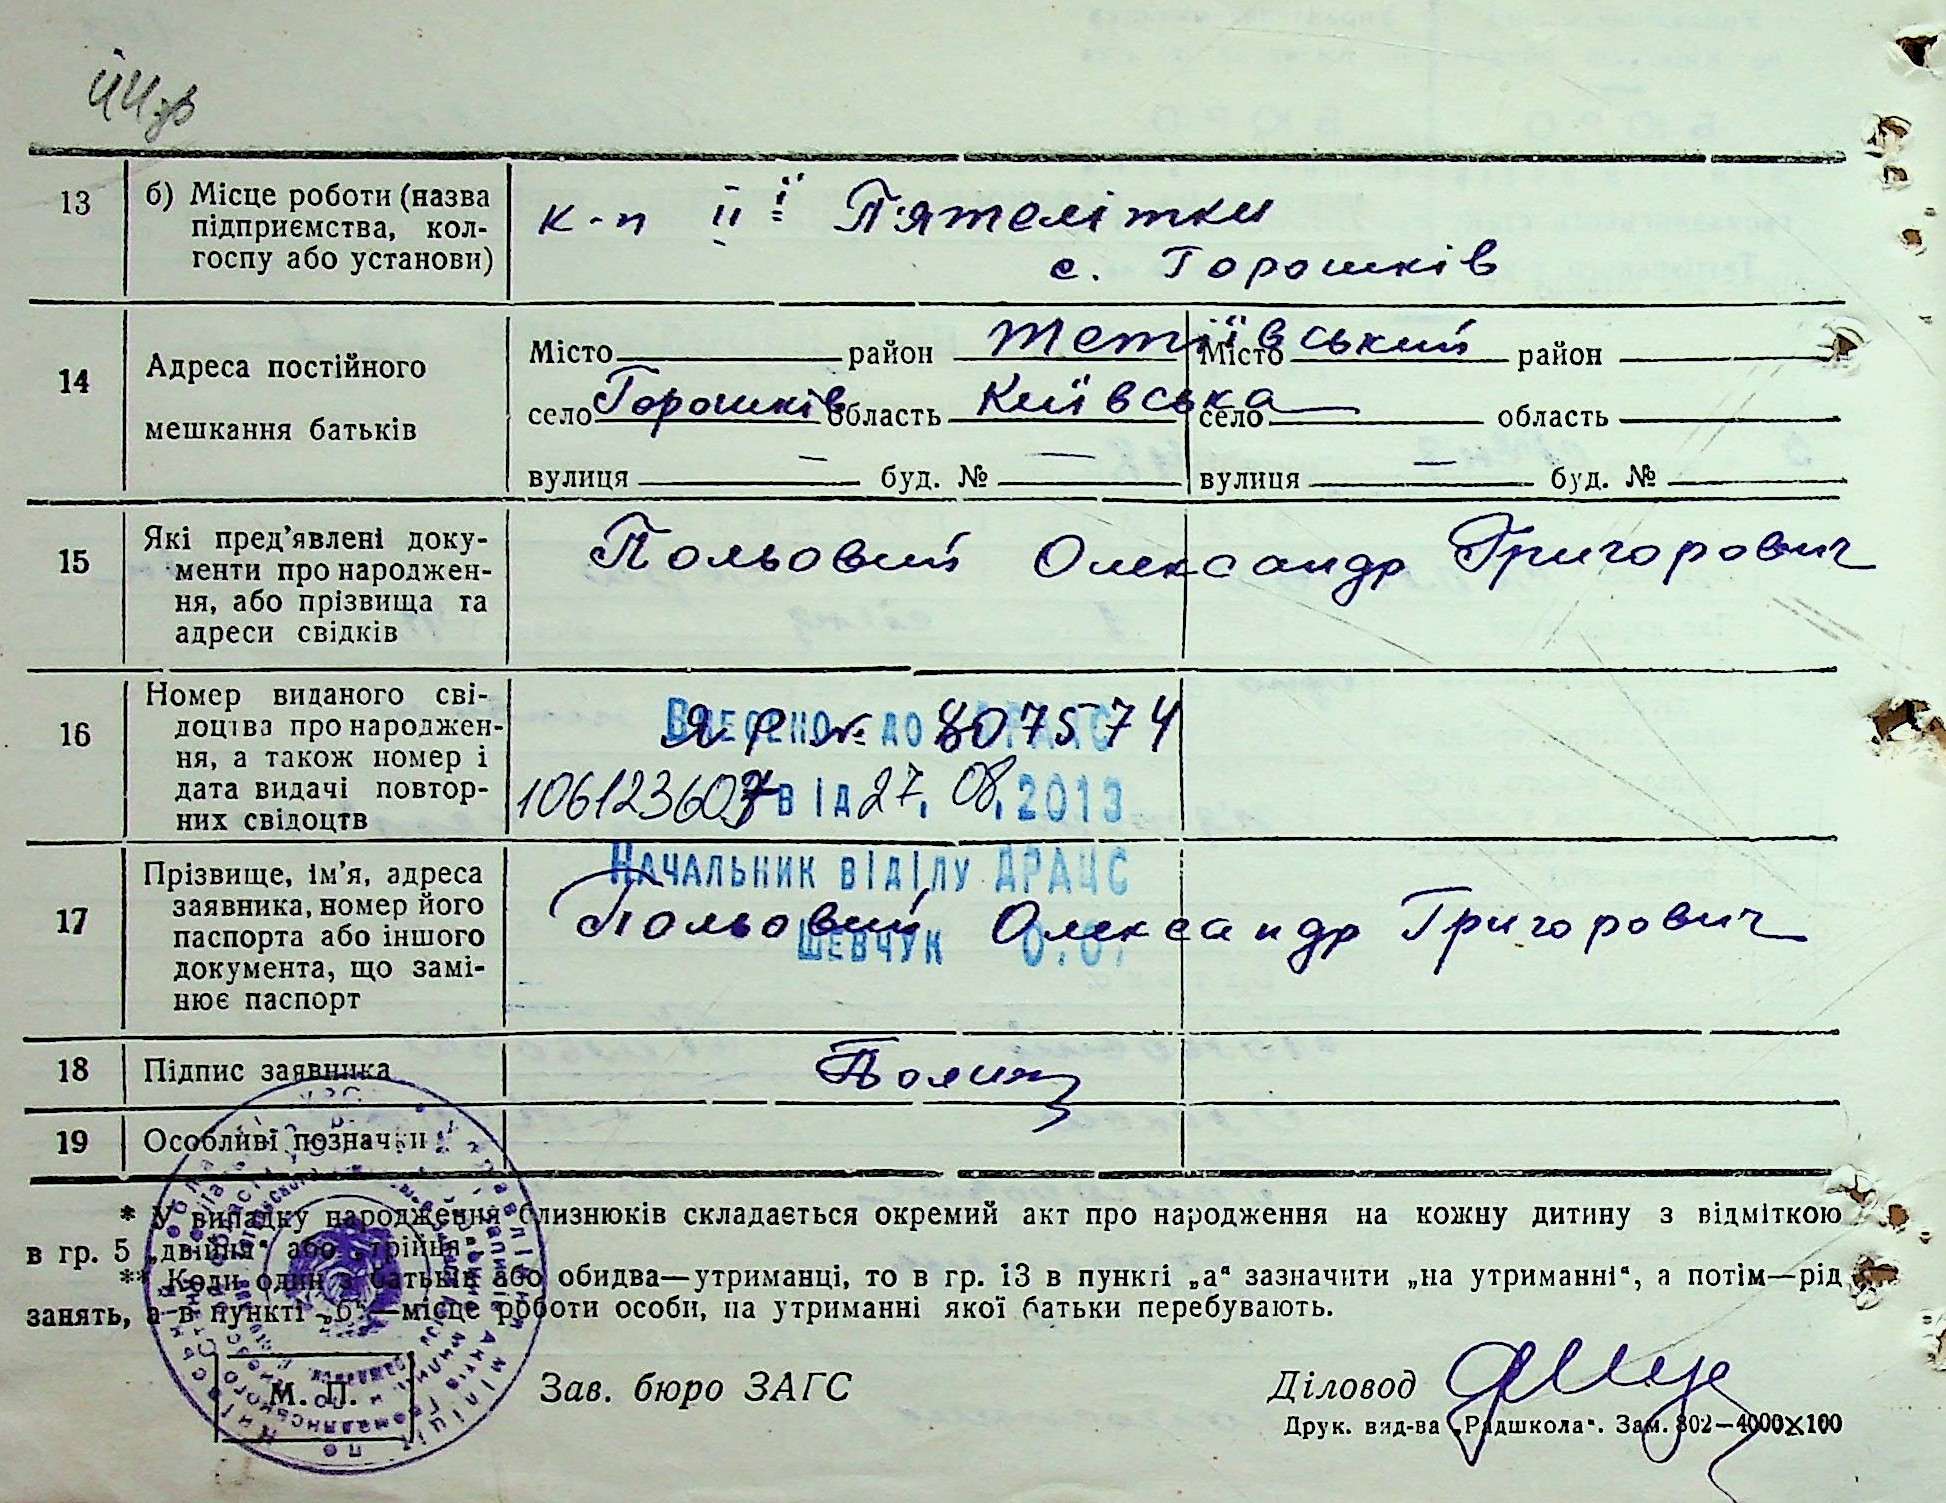 13 б) Місце роботи (назва підприємства, колгоспу або установи)
к-п ІІ ї П'ятелітки
с. Горошків
14 Адреса постійного мешкання батьків
Місто район Тетіївський Місто район
село Горошків область Київська село область
вулиця — буд. № — вулиця — буд. №
15 Які пред'явлені доку-
менти про народжен-
ня, або прізвища та
адреси свідків
Польовий Олександр Григорович
16 Номер виданого сві-
доцтва про народжен-
ня, а також номер і
дата видачі повтор-
них свідоцтв
Внесено до ДРАЦС
ЯР № 807574
106123607 від 27.08.2013
Начальник відділу ДРАЦС
Шевчук О.О.
17 Прізвище, ім'я, адреса
заявника, номер його
паспорта або іншого
документа, що замі-
нює паспорт
Польовий Олександр Григорович
18 Підпис заявника
19 Особливі позначки
* У випадку народження близнюків складається окремий акт про народження на кожну дитину з відміткою
в гр. 5 „двійня“ або „трійня“.
** Коли один з батьків або обидва—утриманці, то в гр. 13 в пункті „а“ зазначити „на утриманні“, а потім—рід
занять, а в пункті „б“—місце роботи особи, на утриманні якої батьки перебувають.
М. П.
Зав. бюро ЗАГС
Діловод
Друк. вид-ва „Радшкола“. Зам. 802—4000×100